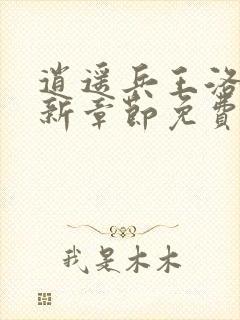 逍遥兵王洛
新章节免费
我是木木